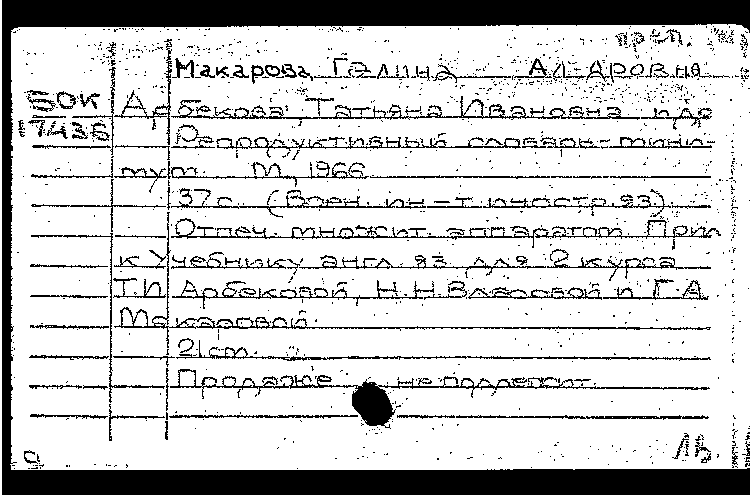 преп.
Макарова, Галина Ал-дровна
БОК Арбекова, Татьяна Ивановна и др
17436 Репродуктивный словарь-мини-
мум. М., 1966
37с. (Воен. ин-т иностр. яз).
Отпеч. множит. аппаратом. Прил
к Учебнику англ. яз для 2 курса
Т.И Арбековой, Н.Н.Власовой и Г.А
Макаровой.
21см.
Продаже не подлежит.
ЛВ.